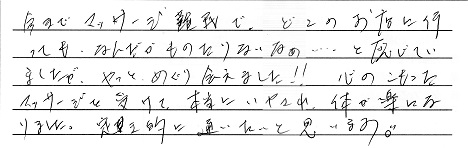 今までマッサージ難民で、どこのお店に行
っても、なんだかものたりないなぁ……と感じてい
ましたが、やっと、めぐり会えました!!心のこもった
マッサージを受けて、本当にいやされ、体が楽にな
りました。定期的に通いたいと思います。